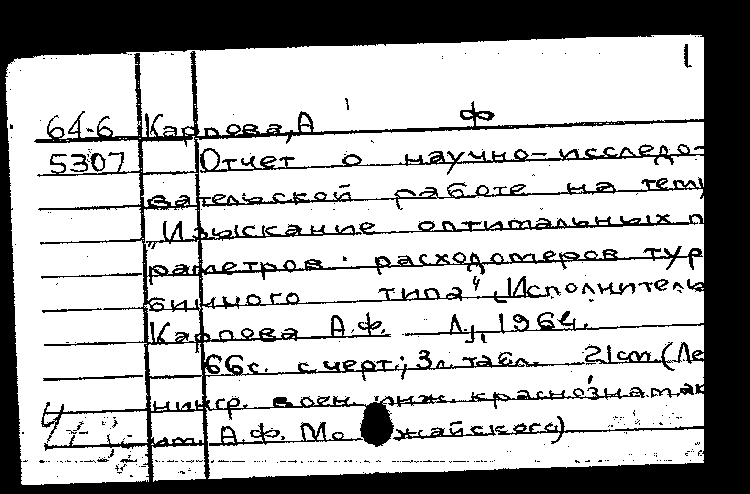 1
64-6 Карпова, А ф
5307 Отчет о научно-исследо-
вательской работе на тему
„Изыскание оптимальных п
раметров расходомеров тур
бинного типа" Исполнитель
Карпова А.Ф. Л., 1964.
66с. с черт.; 3л. табл. 21cm. (Ле
нингр. воен. инж. краснознамен
им. А.Ф. Мо жайского)